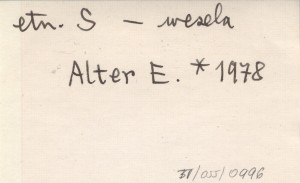 etn. S – wesela
Alter E. * 1978
/0996